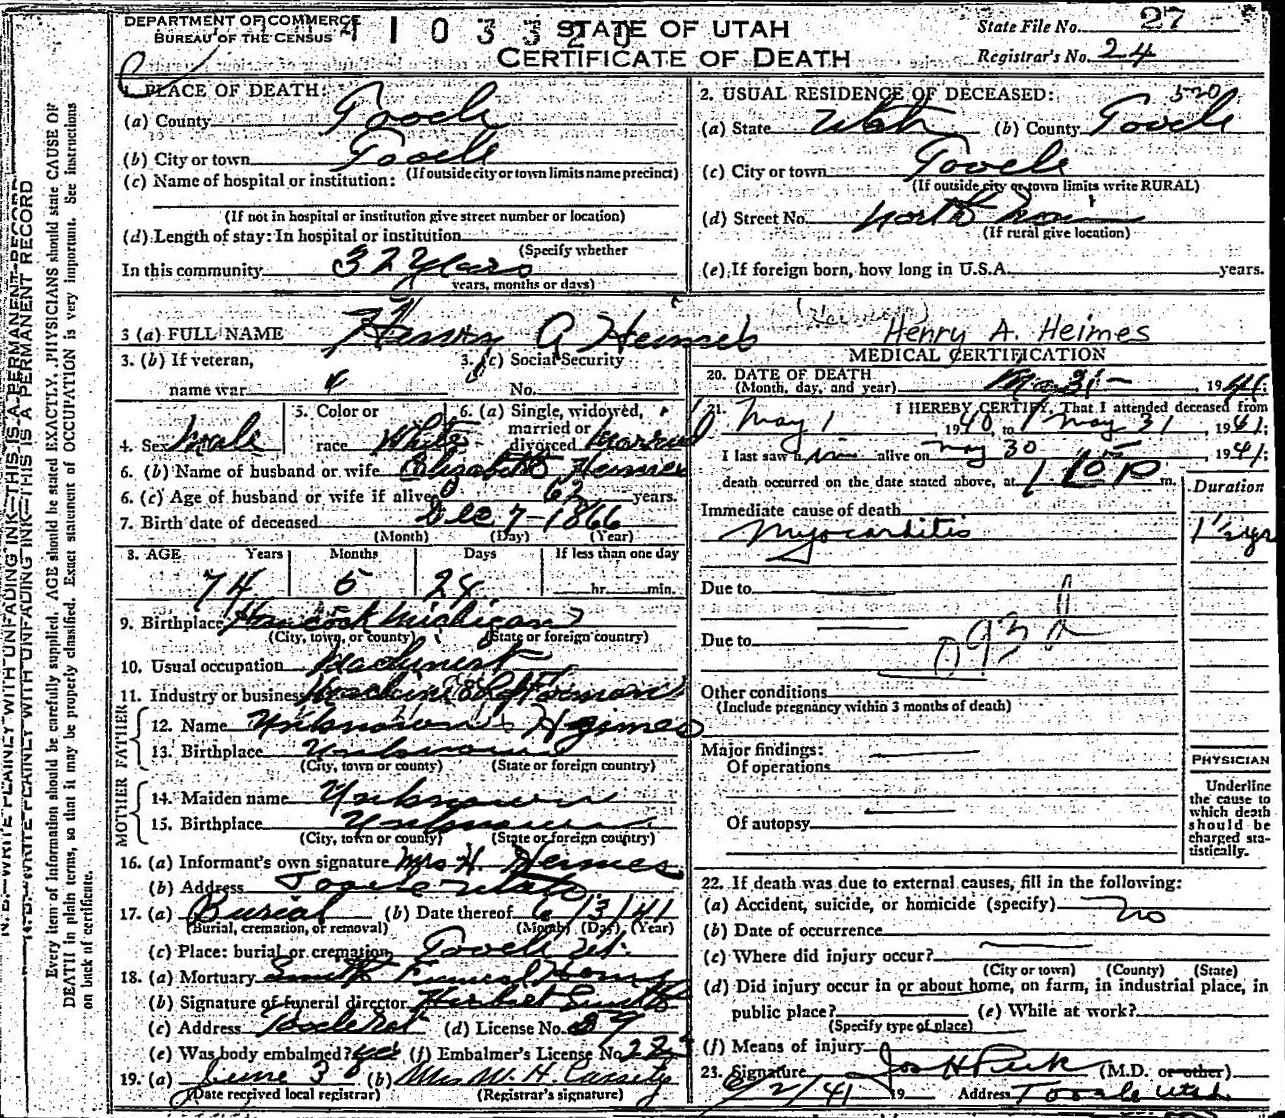 DEPARTMENT OF COMMERCE
BUREAU OF THE CENSUS
STATE OF UTAH
CERTIFICATE OF DEATH
State File No. 27
Registrar's No. 24
1. PLACE OF DEATH:
(a) County Tooele
(b) City or town Tooele
(If outside city or town limits name precinct)
(c) Name of hospital or institution:
(If not in hospital or institution give street number or location)
(d) Length of stay: In hospital or institution
(Specify whether
In this community 32 years
years, months or days)
2. USUAL RESIDENCE OF DECEASED: 520
(a) State Utah (b) County Tooele
(c) City or town Tooele
(If outside city or town limits write RURAL)
(d) Street No. North Main
(If rural give location)
(e) If foreign born, how long in U.S.A. years.
3 (a) FULL NAME Henry A Heimes Henry A. Heimes
3. (b) If veteran,
name war
3. (c) Social Security
No.
4. Sex Male
5. Color or
race White
6. (a) Single, widowed,
married or
divorced Married
6. (b) Name of husband or wife Elizabeth Heimes
6. (c) Age of husband or wife if alive 62 years.
7. Birth date of deceased Dec 7-1866
(Month) (Day) (Year)
8. AGE Years Months Days If less than one day
74 5 24 hr. min.
9. Birthplace Hancock Michigan
(City, town, or county) (State or foreign country)
10. Usual occupation Machinest
11. Industry or business Machine Foreman
FATHER
12. Name Unknown Heimes
13. Birthplace Unknown
(City, town or county) (State or foreign country)
MOTHER
14. Maiden name Unknown
15. Birthplace Unknown
(City, town or county) (State or foreign country)
16. (a) Informant's own signature Mrs H. Heimes
(b) Address Tooele Utah
17. (a) Burial (b) Date thereof 6/3/41
(Burial, cremation, or removal) (Month) (Day) (Year)
(c) Place: burial or cremation Tooele Ut.
18. (a) Mortuary Smith Funeral Home
(b) Signature of funeral director Herbert Smith
(c) Address Tooele Ut (d) License No. 59
(e) Was body embalmed? yes (f) Embalmer's License No. 223
19. (a) June 3 (b) Mrs W. H. Cassity
(Date received local registrar) (Registrar's signature)
MEDICAL CERTIFICATION
20. DATE OF DEATH
(Month, day, and year) May 31- , 1941;
21. I HEREBY CERTIFY, That I attended deceased from
May 1 , 1940, to May 31 , 1941;
I last saw him alive on May 30 , 1941;
death occurred on the date stated above, at m.
Duration
Immediate cause of death
Myocarditis 1 1/2 yrs
Due to
Due to
093 d
Other conditions
(Include pregnancy within 3 months of death)
Major findings:
Of operations
Of autopsy
PHYSICIAN
Underline
the cause to
which death
should be
charged sta-
tistically.
22. If death was due to external causes, fill in the following:
(a) Accident, suicide, or homicide (specify) no
(b) Date of occurrence
(c) Where did injury occur?
(City or town) (County) (State)
(d) Did injury occur in or about home, on farm, in industrial place, in
public place? (e) While at work?
(Specify type of place)
(f) Means of injury
23. Signature Jos H Peck (M.D. or other)
6/2/41 19 Address Tooele Utah
N. B.—WRITE PLAINLY WITH UNFADING INK—THIS IS A PERMANENT RECORD
Every item of information should be carefully supplied. AGE should be stated EXACTLY. PHYSICIANS should state CAUSE OF
DEATH in plain terms, so that it may be properly classified. Exact statement of OCCUPATION is very important. See instructions
on back of certificate.